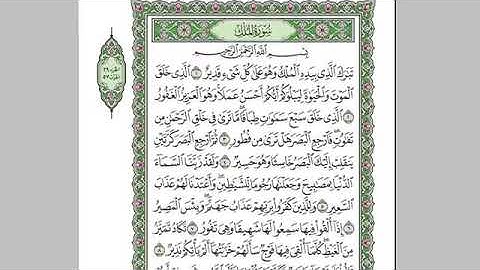 سُورَةُ المُلْكِ
بِسْمِ اللَّهِ الرَّحْمَٰنِ الرَّحِيمِ
تَبَٰرَكَ الَّذِى بِيَدِهِ الْمُلْكُ وَهُوَ عَلَىٰ كُلِّ شَىْءٍ قَدِيرٌ ١ الَّذِى خَلَقَ
الْمَوْتَ وَالْحَيَوٰةَ لِيَبْلُوَكُمْ أَيُّكُمْ أَحْسَنُ عَمَلًا وَهُوَ الْعَزِيزُ الْغَفُورُ
٢ الَّذِى خَلَقَ سَبْعَ سَمَٰوَٰتٍ طِبَاقًا مَّا تَرَىٰ فِى خَلْقِ الرَّحْمَٰنِ مِن
تَفَٰوُتٍ فَارْجِعِ الْبَصَرَ هَلْ تَرَىٰ مِن فُطُورٍ ٣ ثُمَّ ارْجِعِ الْبَصَرَ كَرَّتَيْنِ
يَنقَلِبْ إِلَيْكَ الْبَصَرُ خَاسِئًا وَهُوَ حَسِيرٌ ٤ وَلَقَدْ زَيَّنَّا السَّمَاءَ
الدُّنْيَا بِمَصَٰبِيحَ وَجَعَلْنَٰهَا رُجُومًا لِّلشَّيَٰطِينِ وَأَعْتَدْنَا لَهُمْ عَذَابَ
السَّعِيرِ ٥ وَلِلَّذِينَ كَفَرُوا بِرَبِّهِمْ عَذَابُ جَهَنَّمَ وَبِئْسَ الْمَصِيرُ
٦ إِذَا أُلْقُوا فِيهَا سَمِعُوا لَهَا شَهِيقًا وَهِىَ تَفُورُ ٧ تَكَادُ تَمَيَّزُ
مِنَ الْغَيْظِ كُلَّمَا أُلْقِىَ فِيهَا فَوْجٌ سَأَلَهُمْ خَزَنَتُهَا أَلَمْ يَأْتِكُمْ نَذِيرٌ ٨